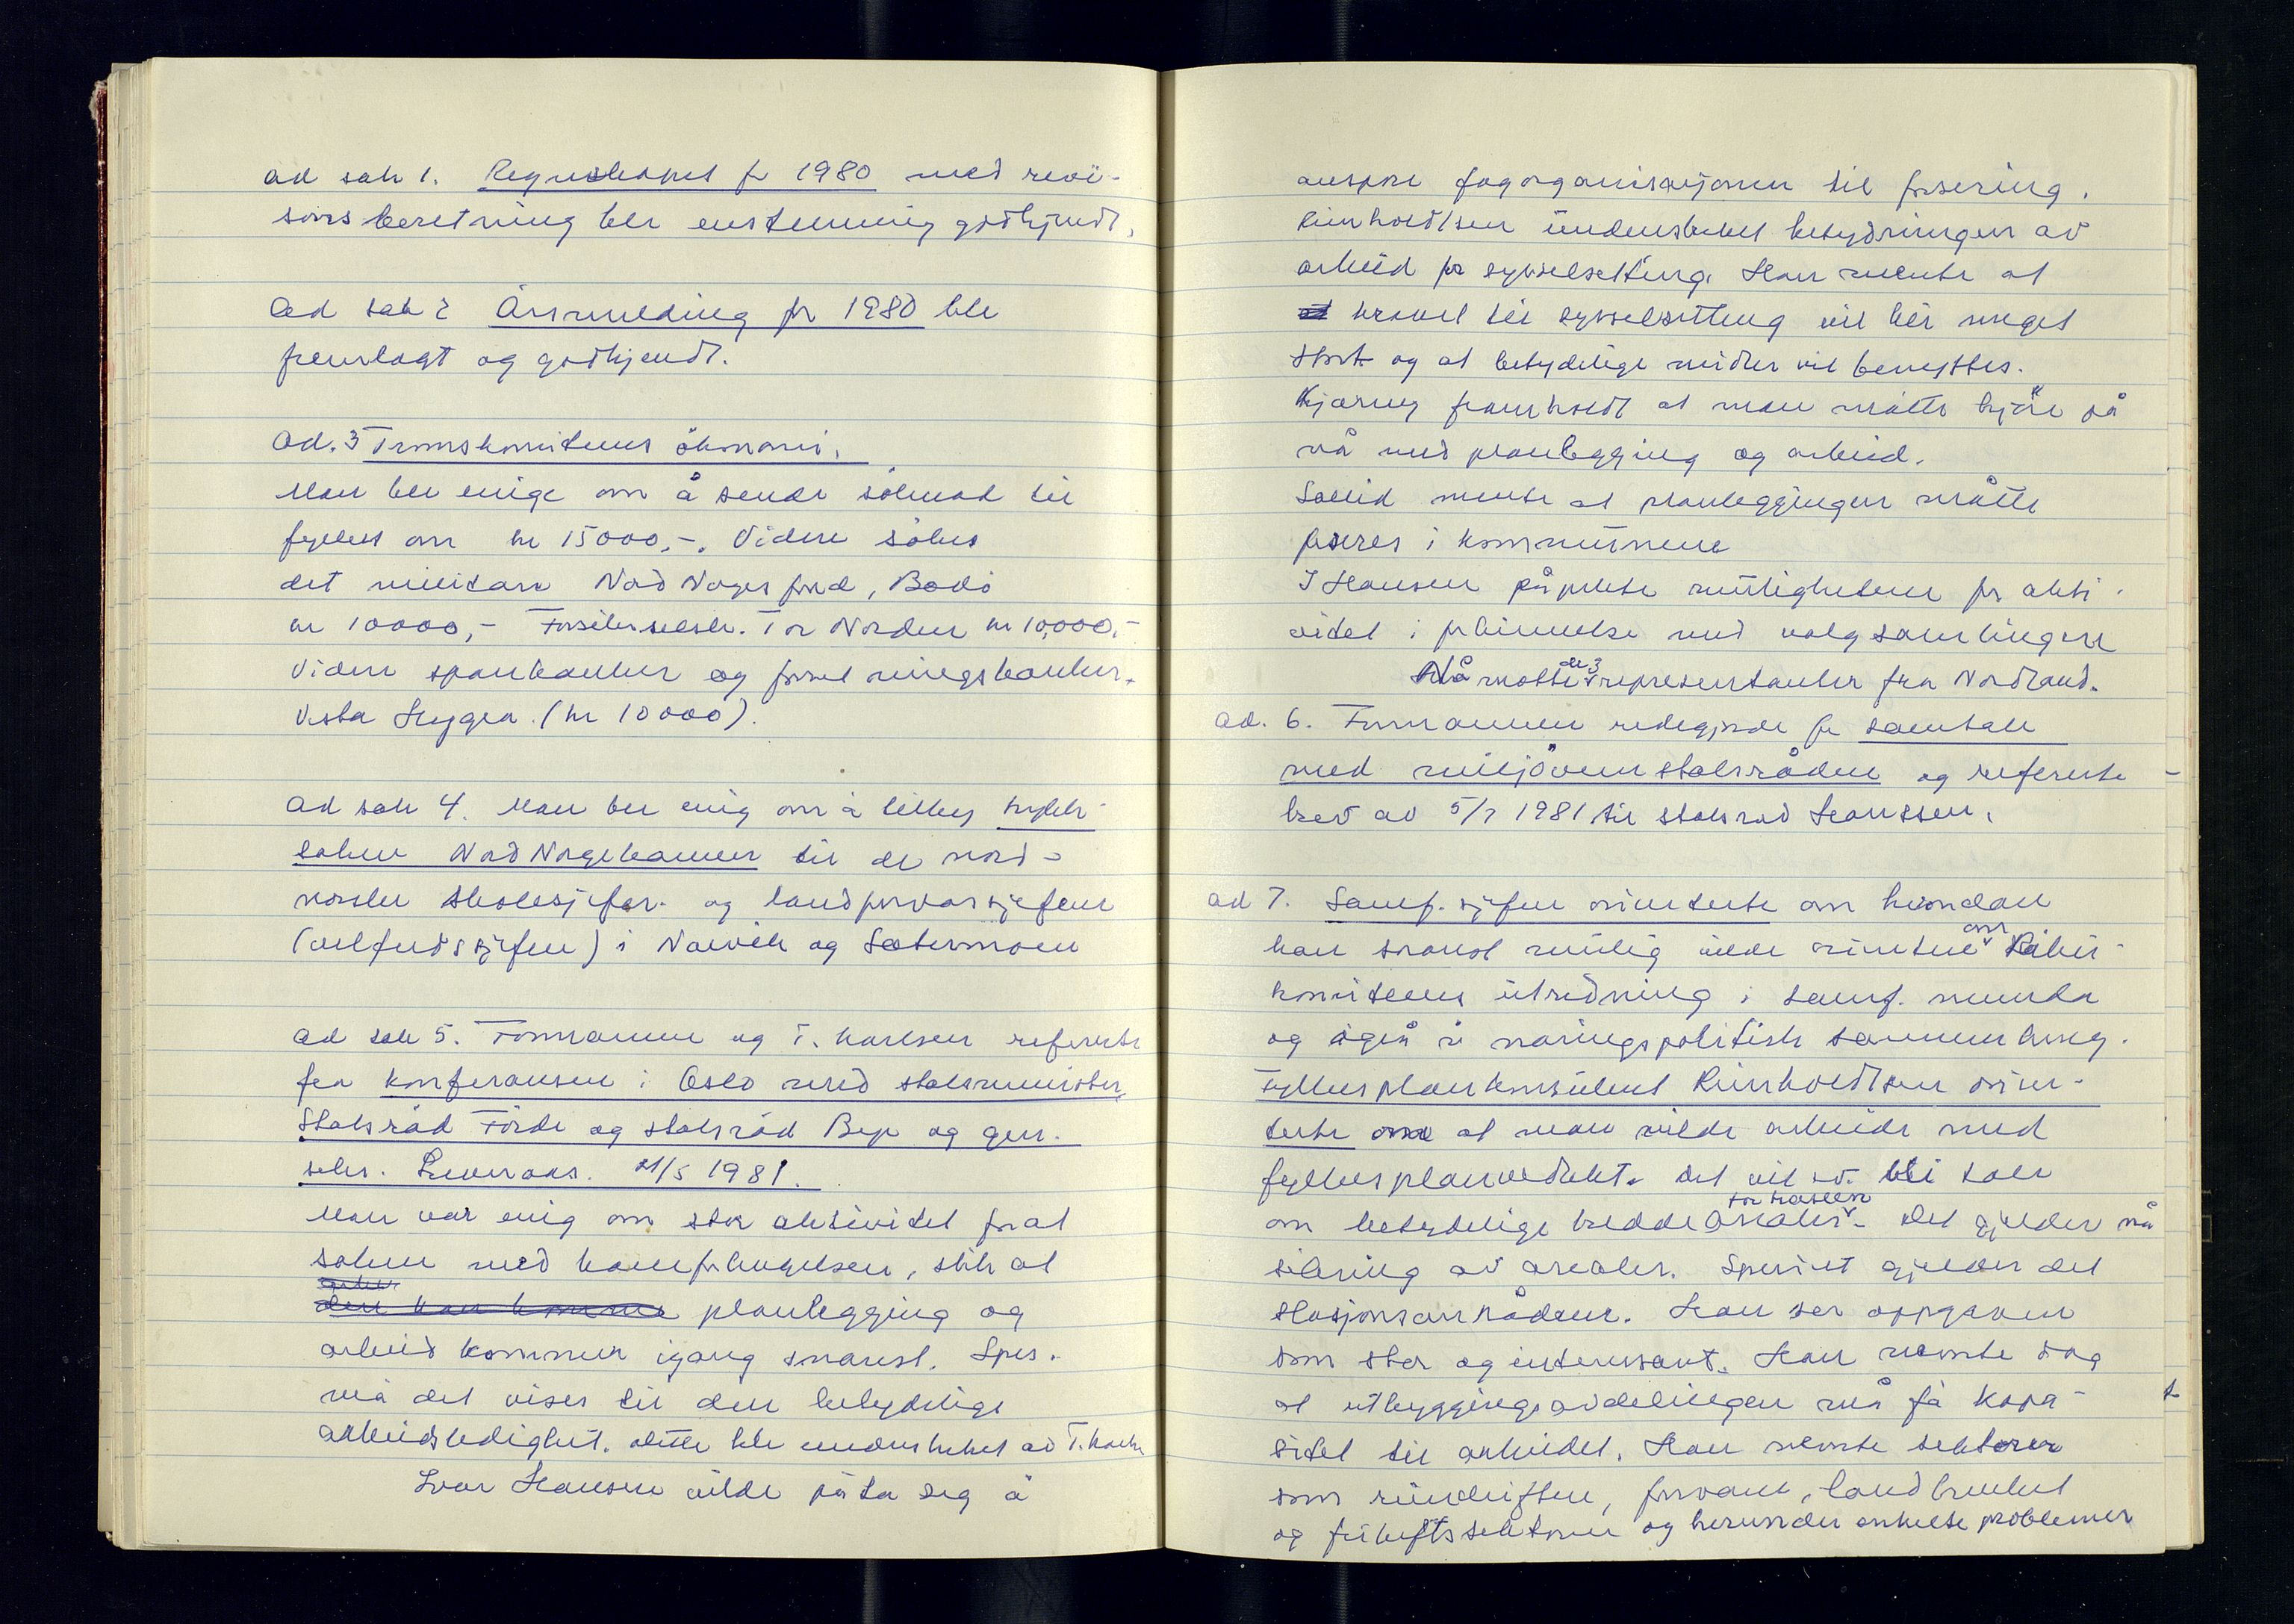 ad sak 1. Regnskapet for 1980 med revi-
sors beretning ble enstemmig godkjendt.
ad sak 2 Årsmelding for 1980 ble
fremlagt og godkjendt.
ad. 3 Tromskomiteens økonomi.
Man ble enige om å sende søknad til
fylket om kr 15000,-. Videre søkes
det militære Nord Norges fond, Bodø
kr 10000,- Forsikrselsk. Tor Norden kr 10,000,-
Videre sparebanker og forretningsbanker.
Vesta Hygea. (kr 10000).
ad sak 4. Man ble enig om å tilby trykk-
saken Nord Norgebanen til de nord-
norske skolesjefer og landforsvarsjefene
(velferdssjefen) i Narvik og Setermoen
ad sak 5. Formannen og T. Karlsen refererte
fra konferansen i Oslo med statsminister,
Statsråd Førde og statsråd Bye og gen.
sekr. Leveraas. 21/5 1981.
Man var enig om stor aktivitet for at
saken med baneforlengelsen, slik at
den kan komme planlegging og
arbeid kommer igang snarest. Spes.
må det vises til den betydelige
arbeidsledighet. Dette ble understreket av T. Karls
Ivar Hansen vilde påta seg å
anspore fagorganisasjonen til forsering.
Reinholdtsen understreket betydningen av
arbeid for sysselsetting. Han mente at
at kravet til sysselsetting vil bli meget
stort og at betydelige midler vil benyttes.
Kjærnes framholdt at man måtte kjøre på
nå med planlegging og arbeid.
Sollid mente at planleggingen måtte
forseres i kommunene
I Hansen påpekte mulighetene for akti-
vitet i forbinnelse med valgsamlingene
Nå møtte de 3 representanter fra Nordland.
ad. 6. Formannen redegjorde for samtale
med miljøvernstatsråden og refererte
brev av 5/7 1981 til statsråd Hanssen.
ad 7. Samf. sjefen orienterte om hvordan
han snarest mulig vilde orientere om Råkil-
komiteens utredning i samf. nemnda
og også i næringspolitisk sammenheng.
Fylkesplankonsulent Reinholdtsen orien-
terte om at man vilde arbeide med
fylkesplanvedtekt. Det vil så bli tale
om betydelige breddearealer for traseen. Det gjelder nå
sikring av arealer. Spesielt gjelder det
stasjonsområdene. Han ser oppgaven
som stor og interessant. Han nevnte også
at utbyggingsavdelingen må få kapa-
sitet til arbeidet. Han nevnte sektorer
som reindriften, forsvaret, landbruket
og friluftssektoren og herunder enkelte problemer